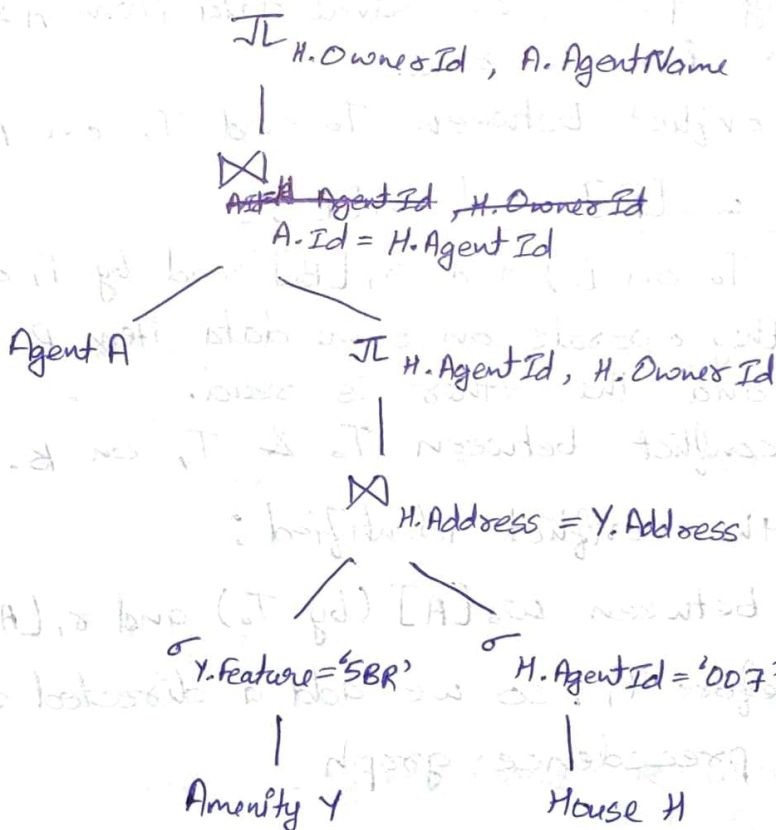 π H.OwnerId, A.AgentName
⋈
A.Id = H.AgentId
Agent A
π H.AgentId, H.OwnerId
⋈ H.Address = Y.Address
σ Y.Feature='5BR'
σ H.AgentId = '007'
Amenity Y
House H